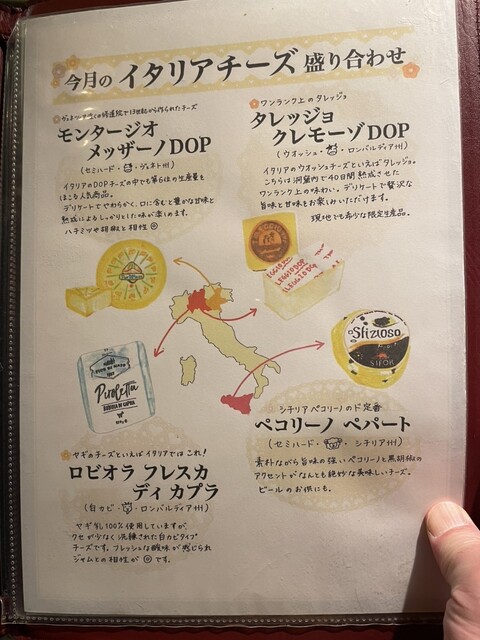 今月の イタリアチーズ 盛り合わせ
モンタージオ
メッザーノDOP
(セミハード・ ・ヴェネト州)
イタリアのDOPチーズの中でも第6位の生産量を
ほこる人気商品。
デリケートでやわらかく、口に含むと豊かな甘味と
熟成によるしっかりとした味が楽しめます。
ハチミツや胡椒と相性◎
ワンランク上のタレッジョ
タレッジョ
クレモーゾDOP
(ウォッシュ・ ・ロンバルディア州)
イタリアのウォッシュチーズといえばタレッジョ。
こちらは洞窟内で40日間熟成させた
ワンランク上の味わい。デリケートで贅沢な
旨味と甘味をお楽しみいただけます。
現地でも希少な限定生産品。
Piroletta
ROBIOLA DI CAPRA
Sfizioso
シチリア ペコリーノのド定番
ペコリーノ ペパート
(セミハード・ ・ シチリア州)
素朴ながら旨味の強いペコリーノと黒胡椒の
アクセントがなんとも絶妙な美味しいチーズ。
ビールのお供にも。
ヤギのチーズといえばイタリアではこれ!
ロビオラ フレスカ
ディ カプラ
(白カビ・ ・ロンバルディア州)
ヤギ乳100%使用していますが、
クセが少なく洗練された白カビタイプ
チーズです。フレッシュな酸味が感じられ
ジャムとの相性が◎です。